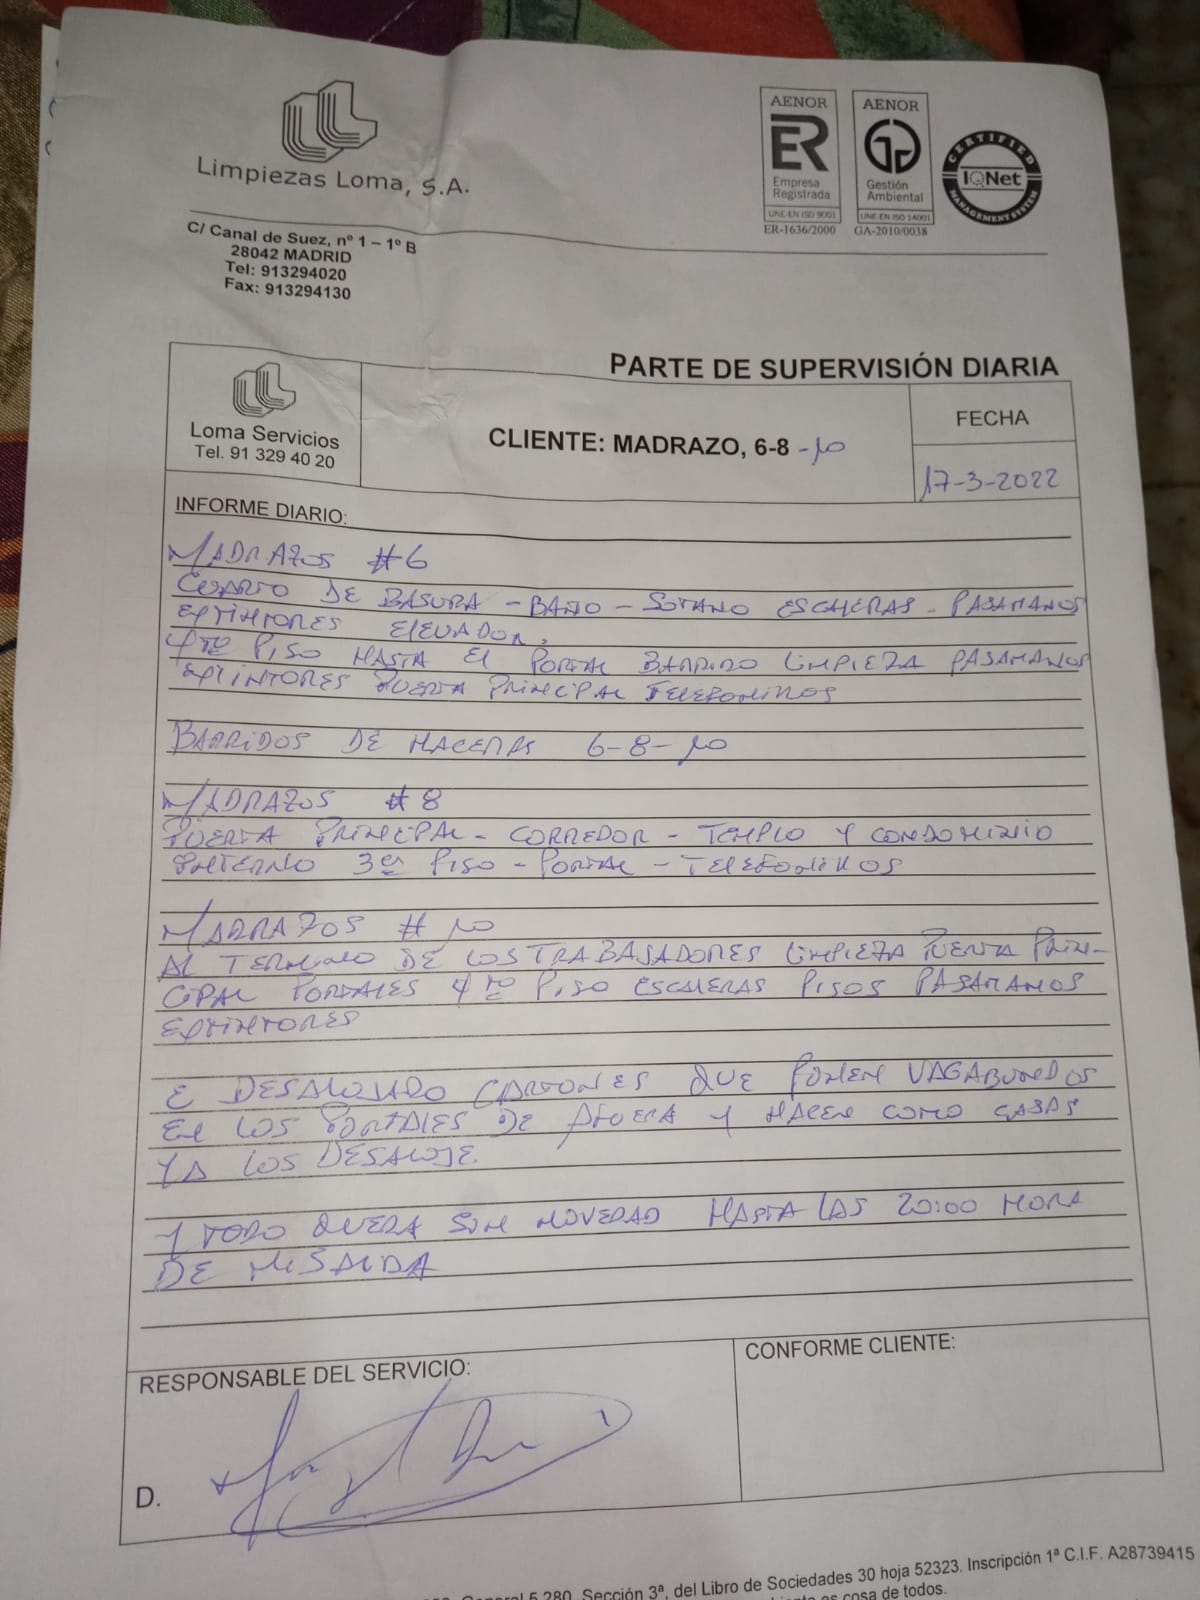 Limpiezas Loma, S.A.
C/ Canal de Suez, nº 1 – 1º B
28042 MADRID
Tel: 913294020
Fax: 913294130
AENOR
ER
Empresa
Registrada
UNE-EN ISO 9001
ER-1636/2000
AENOR
Gestión
Ambiental
UNE-EN ISO 14001
GA-2010/0038
CERTIFIED
IQNet
MANAGEMENT SYSTEM
PARTE DE SUPERVISIÓN DIARIA
Loma Servicios
Tel. 91 329 40 20
CLIENTE: MADRAZO, 6-8 -10
FECHA
17-3-2022
INFORME DIARIO:
MADRAZOS #6
CUARTO DE BASURA - BAÑO - SOTANO ESCALERAS - PASAMANOS
EXTINTORES ELEVADOR,
4to PISO HASTA EL PORTAL BARRIDO LIMPIEZA PASAMANOS
EXTINTORES PUERTA PRINCIPAL TELEFONILLOS
BARRIDOS DE 6-8-10
MADRAZOS #8
PUERTA PRINCIPAL - CORREDOR - TEMPLO Y CONDOMINIO
INTERNO 3er PISO - PORTAL - TELEFONILLOS
MADRAZOS # 10
AL TERMINO DE LOS TRABAJADORES LIMPIEZA PUERTA PRIN-
CIPAL PORTALES 4to PISO ESCALERAS PISOS PASAMANOS
EXTINTORES
E DESALOJADO CARTONES QUE PONEN VAGABUNDOS
EN LOS PORTALES DE AFUERA Y HACEN COMO CASAS
YA LOS DESALOJE.
Y TODO QUEDA SIN NOVEDAD HASTA LAS 20:00 HORA
DE MI SALIDA
RESPONSABLE DEL SERVICIO:
CONFORME CLIENTE:
D.
General 5.280, Sección 3ª, del Libro de Sociedades 30 hoja 52323. Inscripción 1ª C.I.F. A28739415
es cosa de todos.